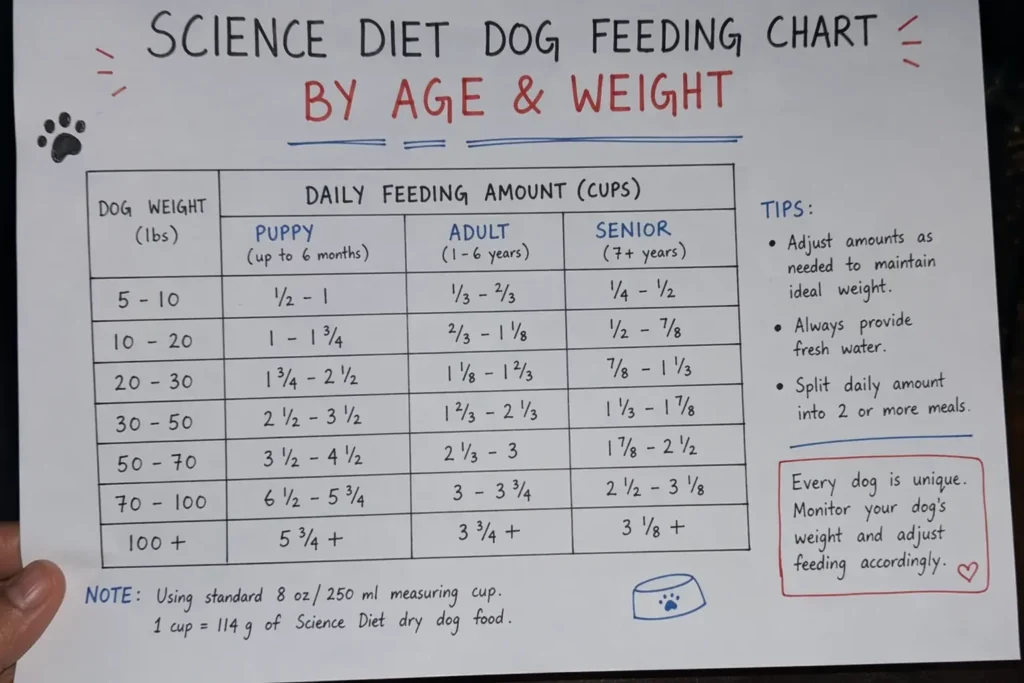 SCIENCE DIET DOG FEEDING CHART
BY AGE & WEIGHT
DOG WEIGHT (lbs) | DAILY FEEDING AMOUNT (CUPS)
PUPPY (up to 6 months) | ADULT (1-6 years) | SENIOR (7+ years)
5 - 10 | ½ - 1 | ⅓ - ⅔ | ¼ - ½
10 - 20 | 1 - 1 ¾ | ⅔ - 1 ⅛ | ½ - ⅞
20 - 30 | 1 ¾ - 2 ½ | 1 ⅛ - 1 ⅔ | ⅞ - 1 ⅓
30 - 50 | 2 ½ - 3 ½ | 1 ⅔ - 2 ⅓ | 1 ⅓ - 1 ⅞
50 - 70 | 3 ½ - 4 ½ | 2 ⅓ - 3 | 1 ⅞ - 2 ½
70 - 100 | 6 ½ - 5 ¾ | 3 - 3 ¾ | 2 ½ - 3 ⅛
100 + | 5 ¾ + | 3 ¾ + | 3 ⅛ +
TIPS:
• Adjust amounts as
needed to maintain
ideal weight.
• Always provide
fresh water.
• Split daily amount
into 2 or more meals.
Every dog is unique.
Monitor your dog's
weight and adjust
feeding accordingly.
NOTE: Using standard 8 oz/250 ml measuring cup.
1 cup = 114 g of Science Diet dry dog food.